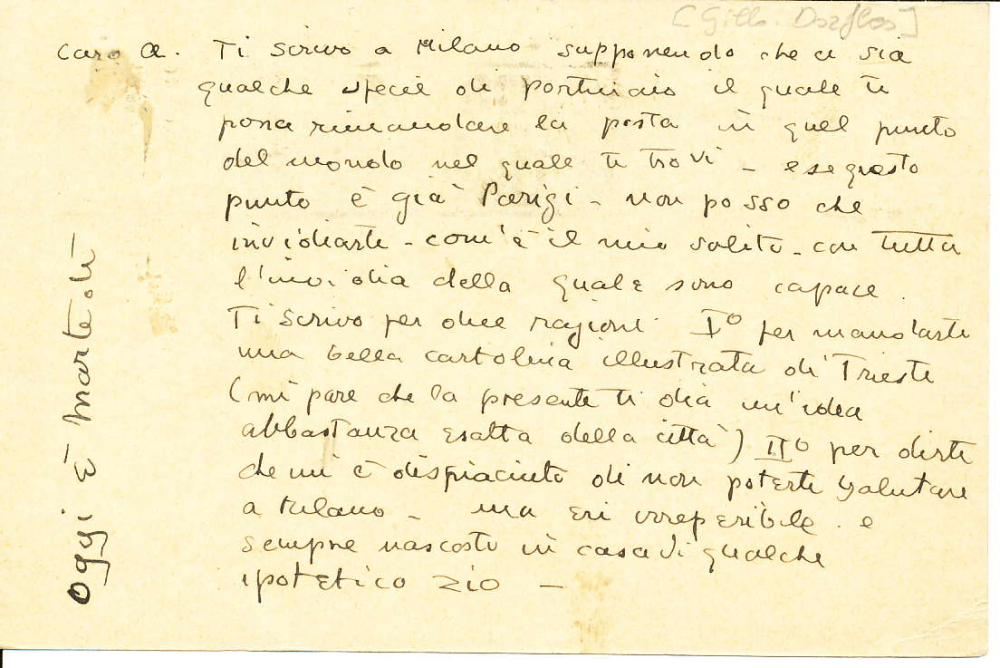 [Gillo Dorfles]
Caro A. Ti scrivo a Milano supponendo che ci sia
qualche specie di portinaio il quale ti
possa rimandare la posta in quel punto
del mondo nel quale ti trovi - e se questo
punto è già Parigi - non posso che
invidiarti - com'è il mio solito - con tutta
l'invidia della quale sono capace.
Ti scrivo per due ragioni Iº per mandarti
una bella cartolina illustrata di Trieste
(mi pare che la presente ti dia un'idea
abbastanza esatta della città) IIº per dirti
che mi è dispiaciuto di non poterti salutare
a Milano - ma eri irreperibile e
sempre nascosto in casa di qualche
ipotetico zio -
Oggi è martedì